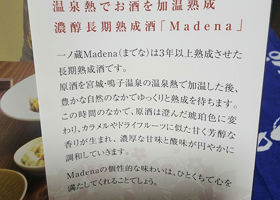 温泉熱でお酒を加温熟成
濃醇長期熟成酒「Madena」
一ノ蔵Madena(までな)は3年以上熟成させた
長期熟成酒です。
原酒を宮城・鳴子温泉の温泉熱で加温した後、
豊かな自然のなかでゆっくりと熟成を待ちます。
この時間のなかで、原酒は澄んだ琥珀色に変
わり、カラメルやドライフルーツに似た甘く芳醇な
香りが生まれ、濃厚な甘味と酸味が円やかに
調和していきます。
Madenaの個性的な味わいは、ひとくちで心を
満たしてくれることでしょう。